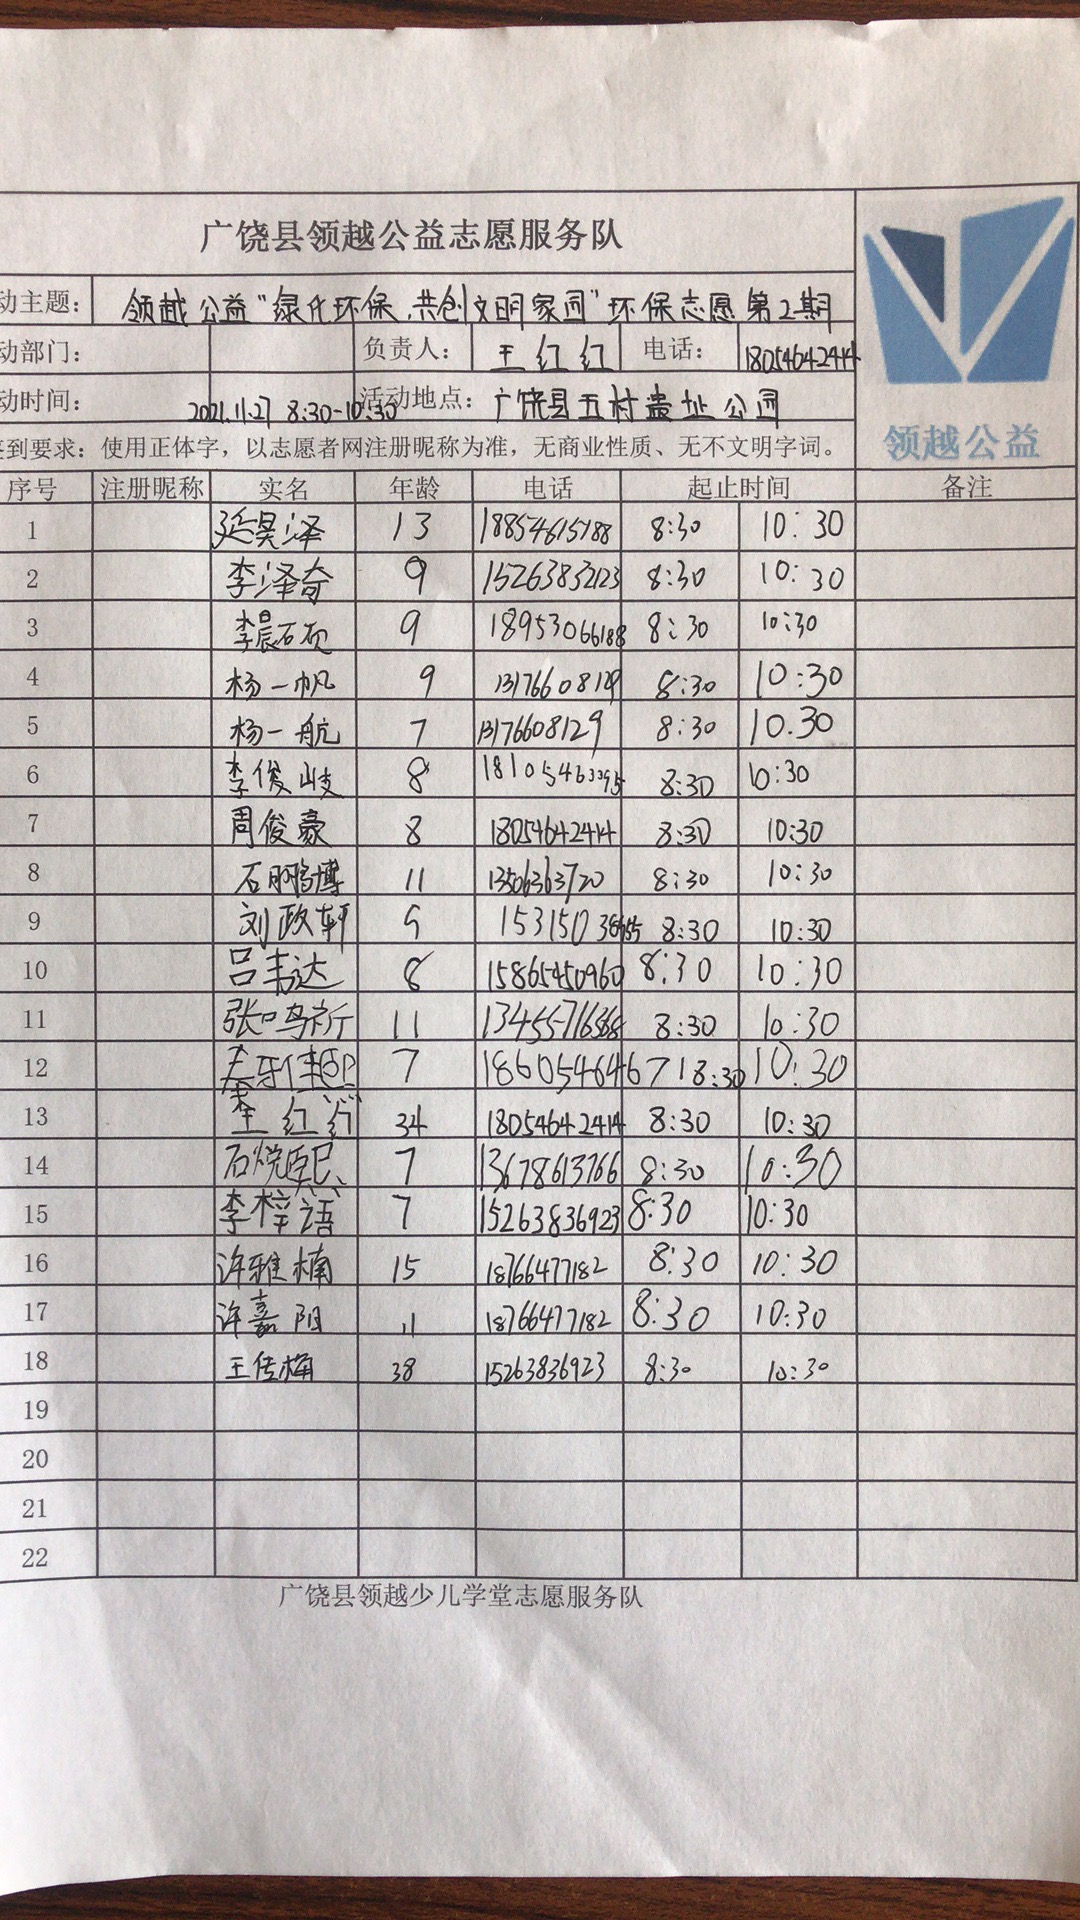 广饶县领越公益志愿服务队
动主题： 领越公益"绿化环保,共创文明家园"环保志愿第2期
动部门： 负责人： 王红红 电话： 18054642414
动时间： 2021.11.27 8:30-10:30 活动地点： 广饶县五村遗址公园
到要求：使用正体字，以志愿者网注册昵称为准，无商业性质、无不文明字词。
领越公益
序号 注册昵称 实名 年龄 电话 起止时间 备注
1 延昊泽 13 18854615188 8:30 10:30
2 李泽奇 9 15263832123 8:30 10:30
3 李晨硕 9 18953066188 8:30 10:30
4 杨一帆 9 13176608129 8:30 10:30
5 杨一航 7 13176608129 8:30 10.30
6 李俊岐 8 8:30 10:30
7 周俊豪 8 18054642414 8:30 10:30
8 石鹏博 11 13506363720 8:30 10:30
9 刘政轩 8:30 10:30
10 吕韦达 8 15865450960 8:30 10:30
11 张鸣新 11 8:30 10:30
12 7 18605464671 8:30 10:30
13 王红红 34 18054642414 8:30 10:30
14 石悦熙 7 13678613766 8:30 10:30
15 李梓语 7 15263836923 8:30 10:30
16 许雅楠 15 18766477182 8:30 10:30
17 许嘉阳 11 18766477182 8:30 10:30
18 王传梅 38 15263836923 8:30 10:30
19
20
21
22
广饶县领越少儿学堂志愿服务队